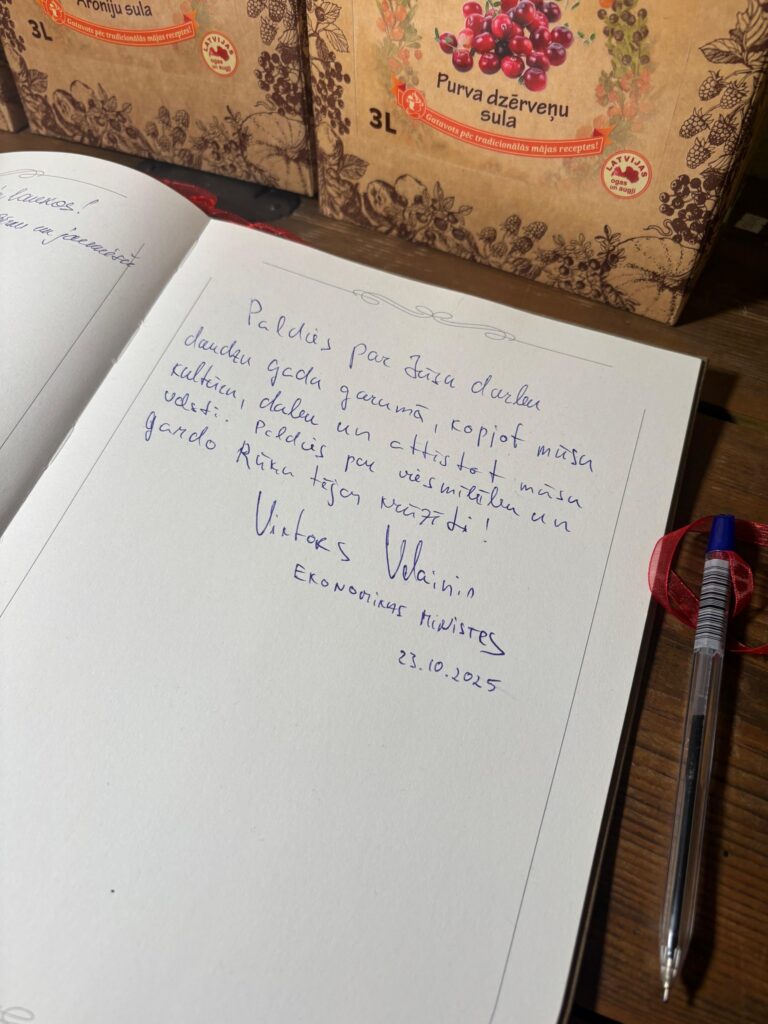 Aroniju sula
3L
Gatavots pēc tradicionālās mājas receptes!
LATVIJAS
ogas
un augļi
Purva dzērveņu
sula
3L
Gatavots pēc tradicionālās mājas receptes!
LATVIJAS
ogas
un augļi
laukos!
un
Paldies par Jūsu darbu
daudzu gadu garumā, kopjot mūsu
kultūru, dabu un attīstot mūsu
valsti. Paldies par viesmīlību un
gardo Rūķu tējas krūzīti!
Viktors Valainis
EKONOMIKAS MINISTRS
23.10.2025